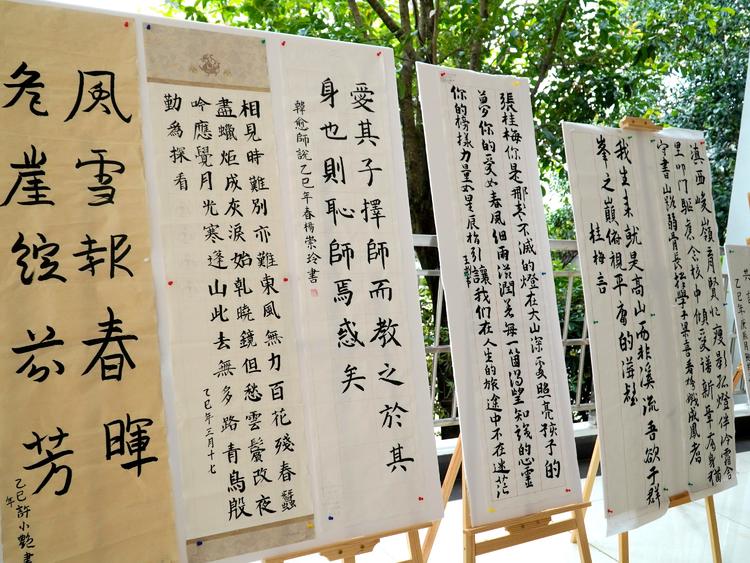 風雪報春暉
危崖綻芬芳
乙巳許小艷書
年
相見時難別亦難東風無力百花殘春蠶
盡蠟炬成灰淚始乾曉鏡但愁雲鬢改夜
吟應覺月光寒逢山此去無多路青鳥殷
勤為探看
乙巳年三月十七
愛其子擇師而教之於其
身也則恥師焉惑矣
韓愈師說乙巳年春楊崇玲書
張桂梅你是那盞不滅的燈在大山深處照亮孩子的
夢你的愛如春風細雨滋潤着每一個渴望知識的心靈
你的榜樣力量如星辰指引讓我們在人生的旅途中不在迷茫
滇西峻嶺育賢瘦影孤燈伴冷霞
我生来就是高山而非溪流吾欲于群
峯之巔俯視平庸的溝壑
桂梅言